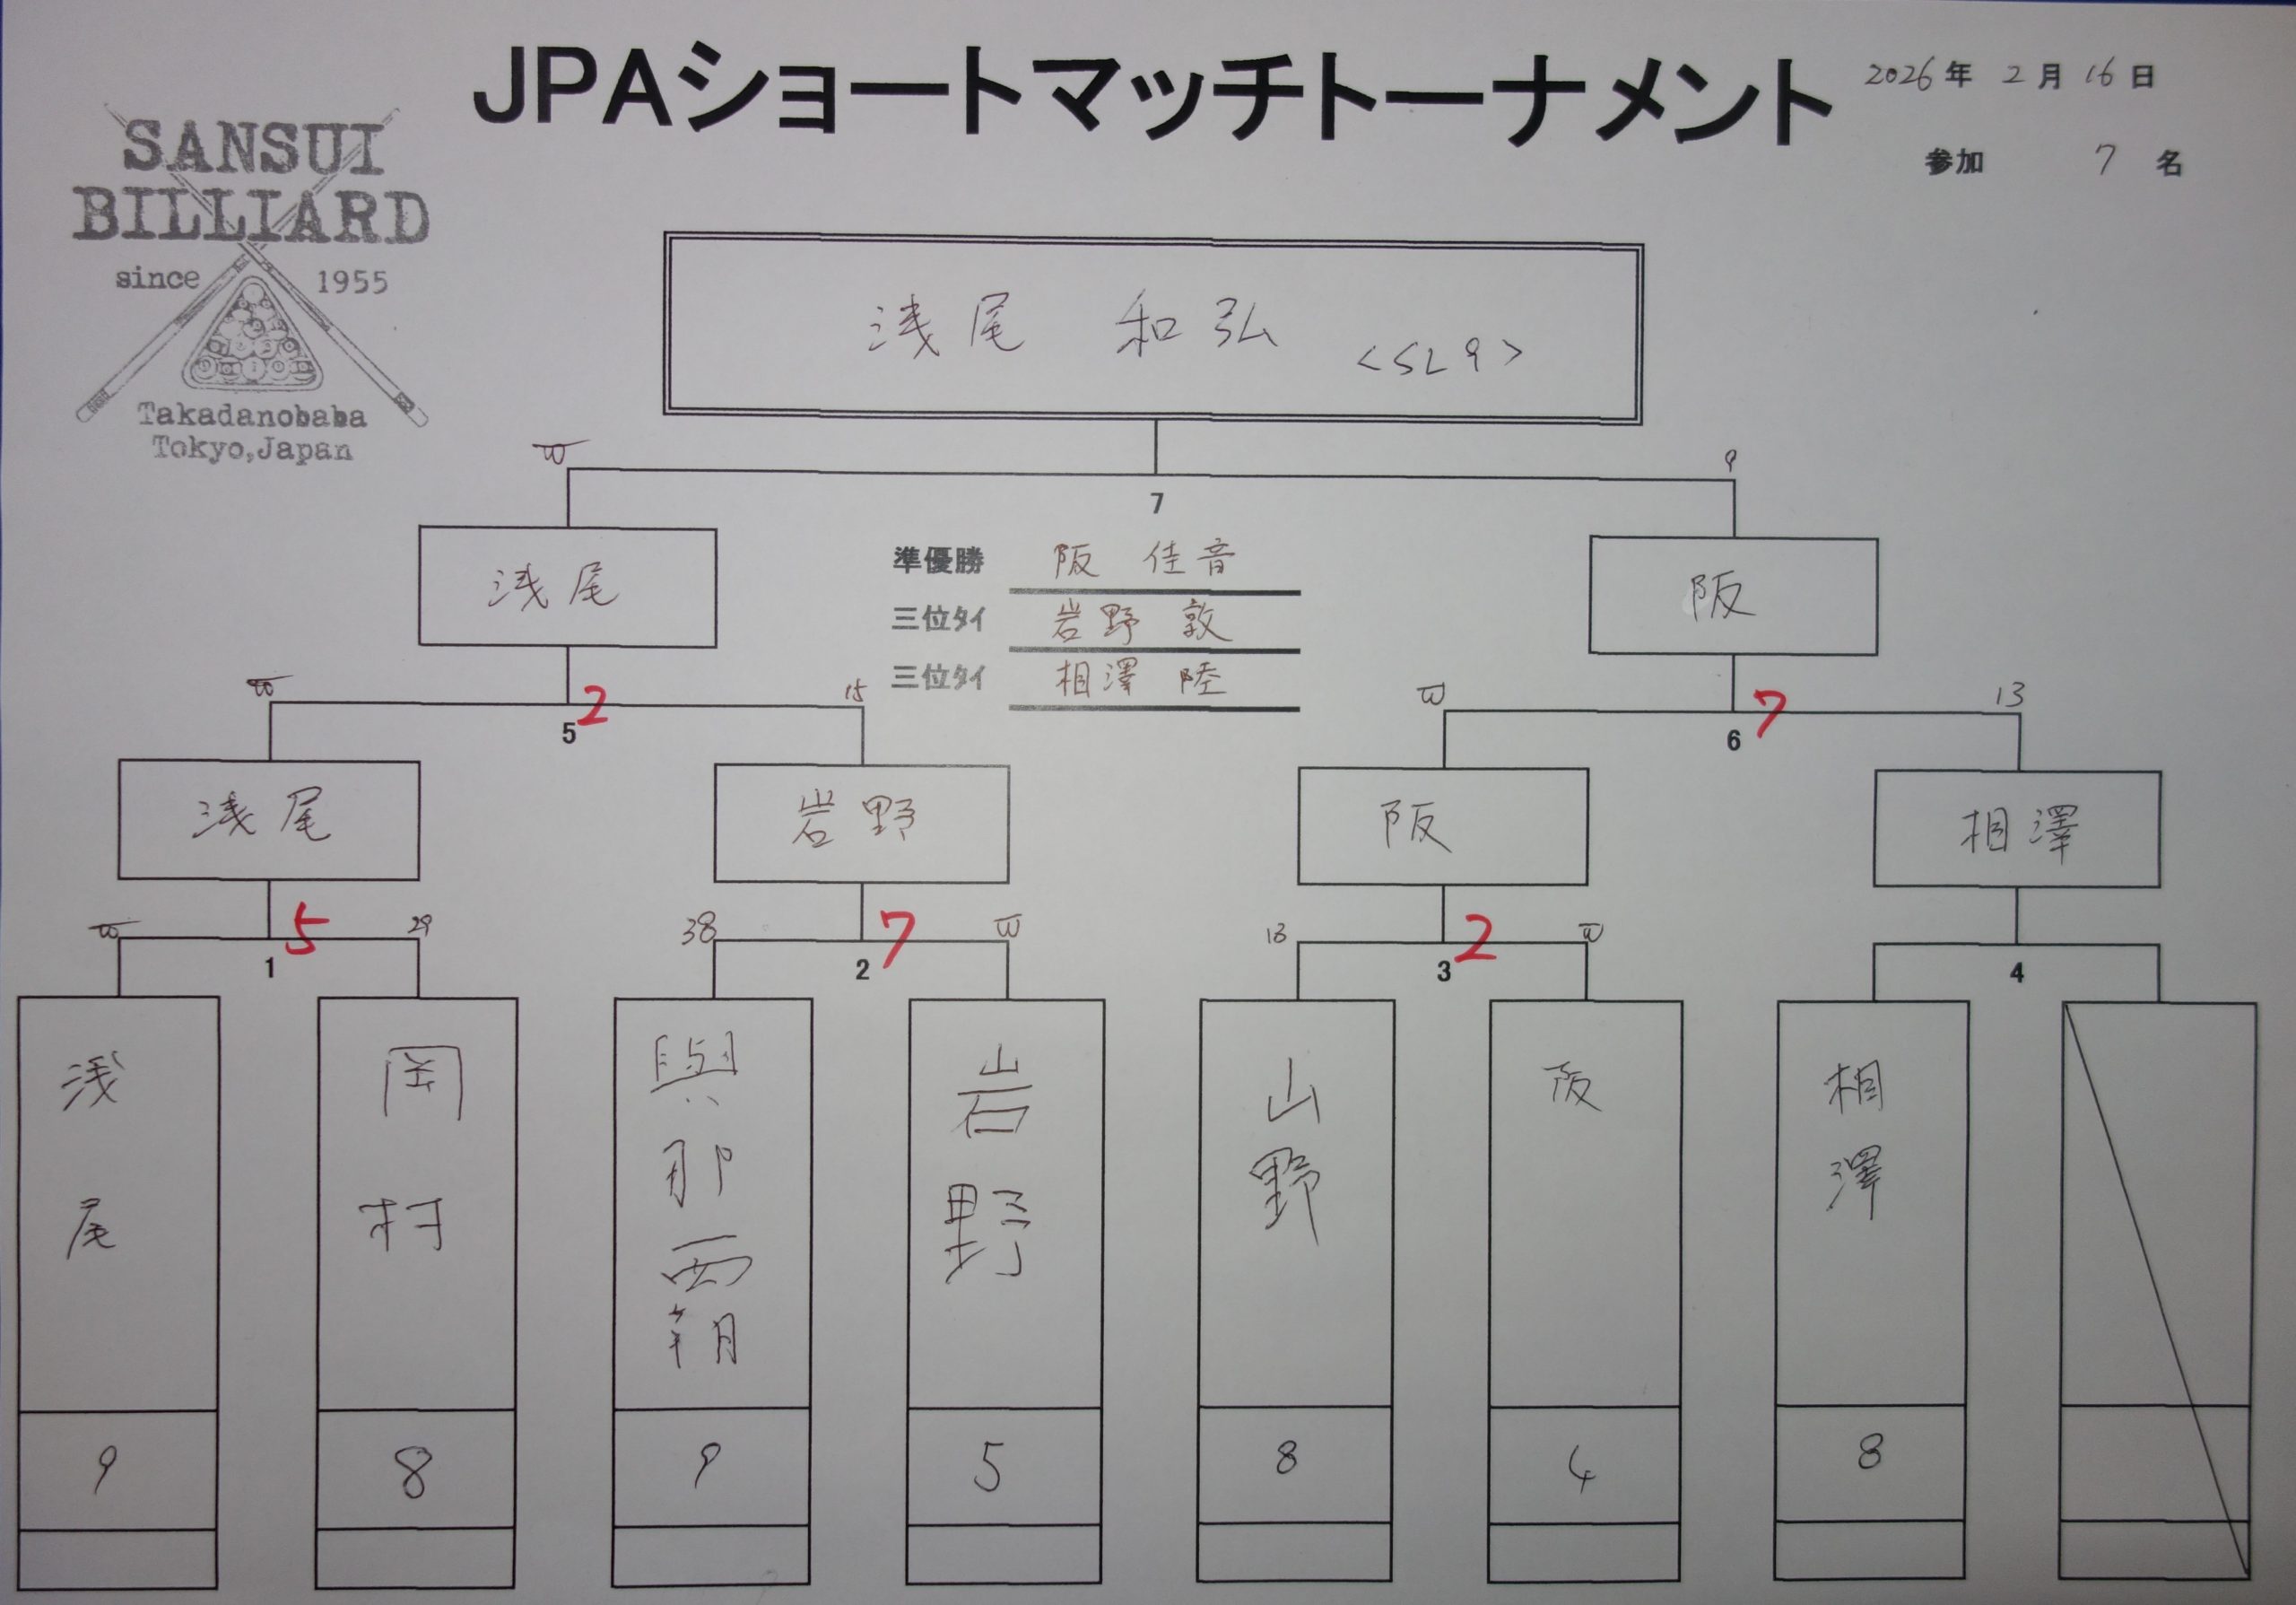 JPAショートマッチトーナメント
2026年 2月 16日
参加 7 名
SANSUI
BILLIARD
since 1955
Takadanobaba
Tokyo,Japan
浅尾 和弘 <SL9>
W 9
7
浅尾
阪
準優勝 阪 佳音
三位タイ 岩野 敦
三位タイ 相澤 陸
W 15
5 2
W 13
6 7
浅尾
岩野
阪
相澤
W 29
1 5
38 W
2 7
13 W
3 2
4
浅尾
岡村
與那覇
岩野
山野
阪
相澤
9
8
9
5
8
4
8